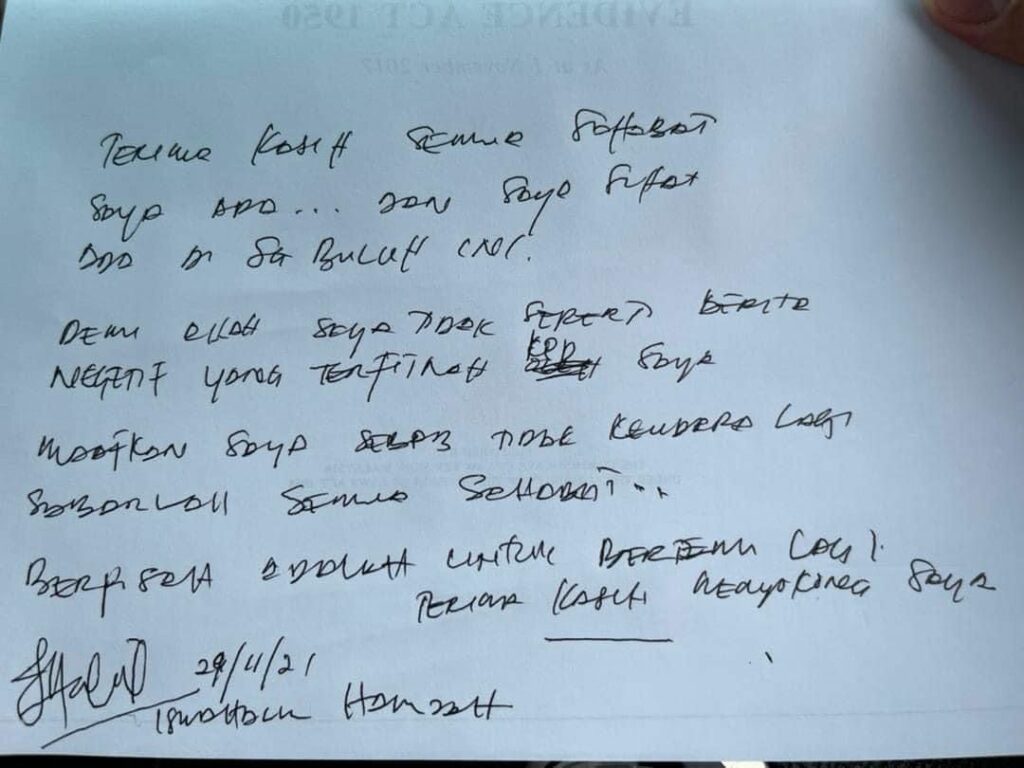 EVIDENCE ACT 1950
As at 1 November 2017
TERIMA KASIH SEMUA SAHABAT
SAYA ADA... DAN SAYA SIHAT
ADA DI SG BULUH INI.
DEMI ALLAH SAYA TIDAK SEPERTI BERITA
NEGETIF YANG TERFITNAH KPD SAYA
MAAFKAN SAYA SEBAB TIDAK KENDERA LAGI
SABARLAH SEMUA SAHABAT...
BERPISAH ADALAH UNTUK BERTEMU LAGI.
TERIMA KASIH MENYOKONG SAYA
29/11/21
HAMZAH